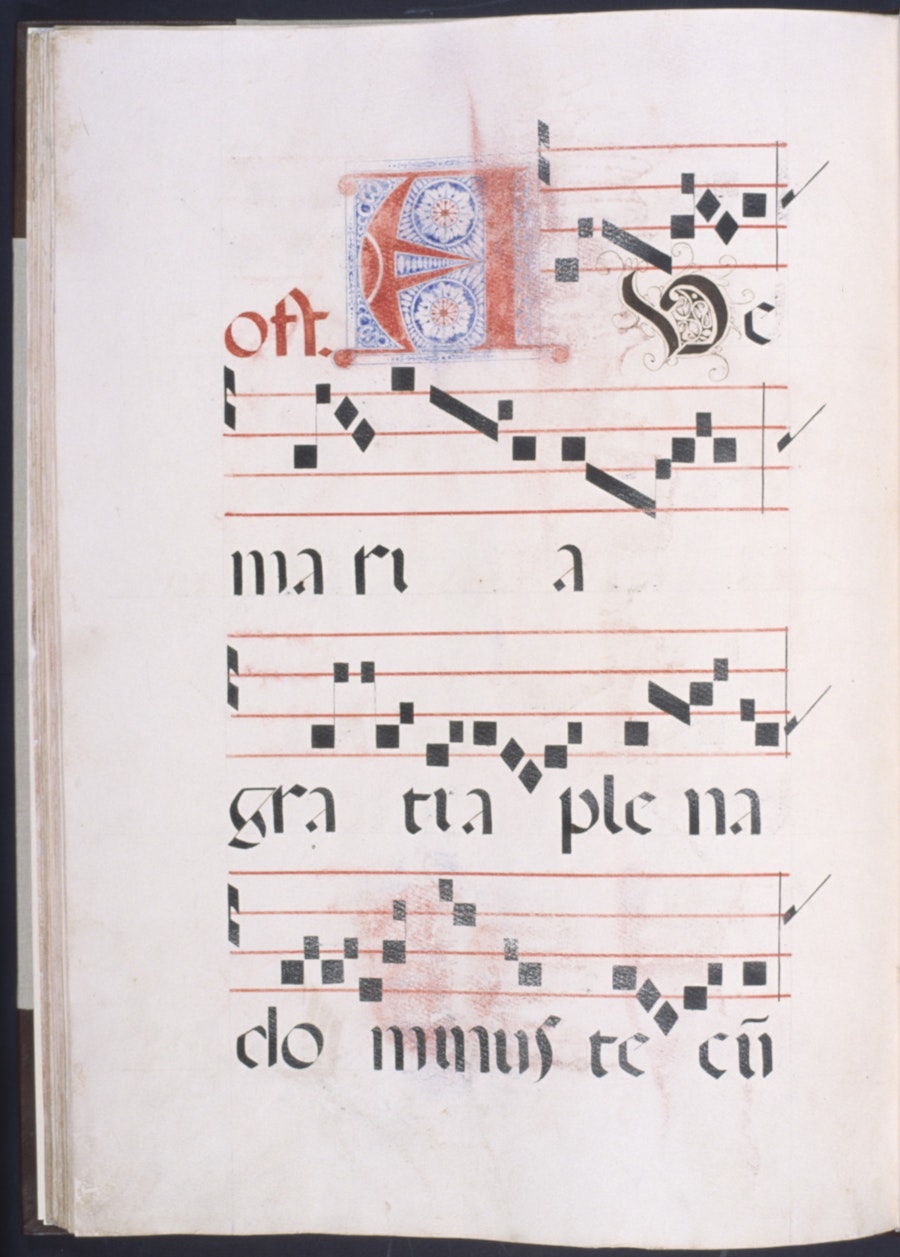 Oft. A Ve
ma ri a
gra tia ple na
do minus te cū